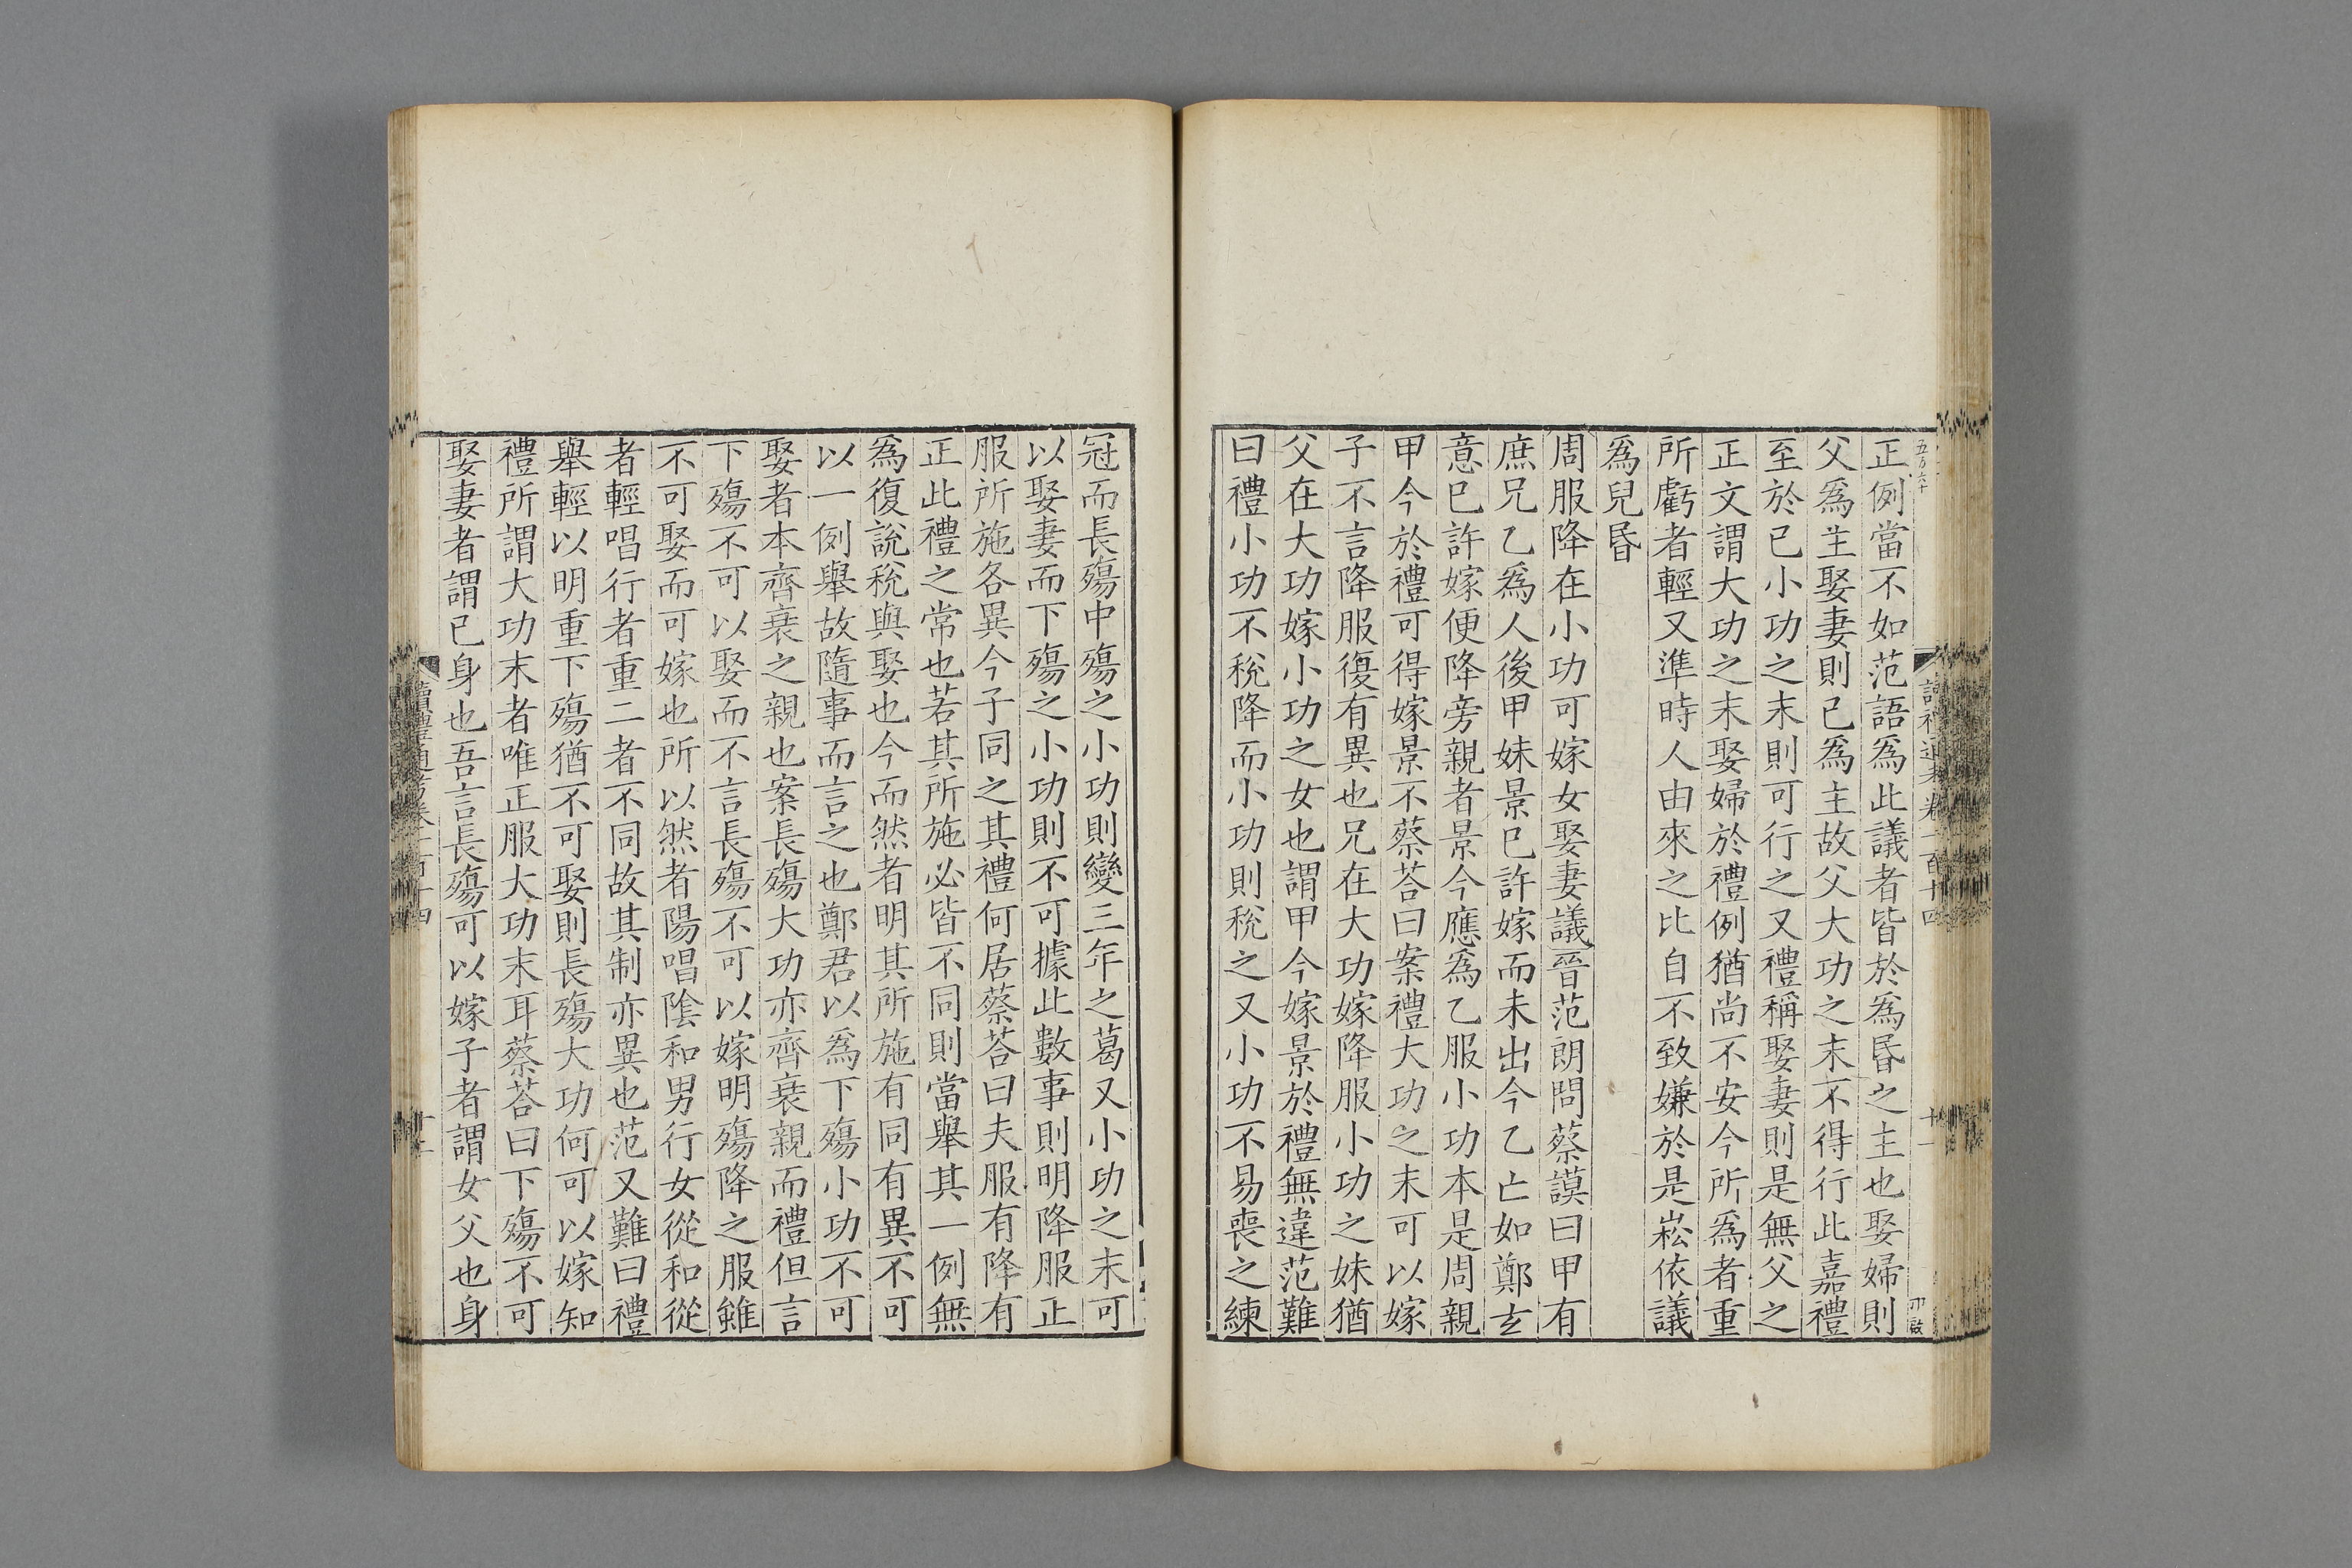 正例當不如范語爲此議者皆於爲昏之主也娶婦則
父爲主娶妻則己爲主故父大功之末不得行此嘉禮
至於己小功之末則可行之又禮稱娶妻則是無父之
正文謂大功之末娶婦於禮例猶尚不安今所爲者重
所虧者輕又準時人由來之比自不致嫌於是崧依議
爲兒昏
周服降在小功可嫁女娶妻議晉范朗問蔡謨曰甲有
庶兄乙爲人後甲妹景已許嫁而未出今乙亡如鄭玄
意已許嫁便降旁親者景今應爲乙服小功本是周親
甲今於禮可得嫁景不蔡荅曰案禮大功之末可以嫁
子不言降服復有異也兄在大功嫁降服小功之妹猶
父在大功嫁小功之女也謂甲今嫁景於禮無違范難
曰禮小功不稅降而小功則稅之又小功不易喪之練
冠而長殤中殤之小功則變三年之葛又小功之末可
以娶妻而下殤之小功則不可據此數事則明降服正
服所施各異今子同之其禮何居蔡荅曰夫服有降有
正此禮之常也若其所施必皆不同則當舉其一例無
爲復說稅與娶也今而然者明其所施有同有異不可
以一例舉故隨事而言之也鄭君以爲下殤小功不可
娶者本齊衰之親也案長殤大功亦齊衰親而禮但言
下殤不可以娶而不言長殤不可以嫁明殤降之服雖
不可娶而可嫁也所以然者陽唱陰和男行女從和從
者輕唱行者重二者不同故其制亦異也范又難曰禮
舉輕以明重下殤猶不可娶則長殤大功何可以嫁知
禮所謂大功末者唯正服大功末耳蔡荅曰下殤不可
娶妻者謂己身也吾言長殤可以嫁子者謂女父也身
讀禮通考卷一百十四
十一